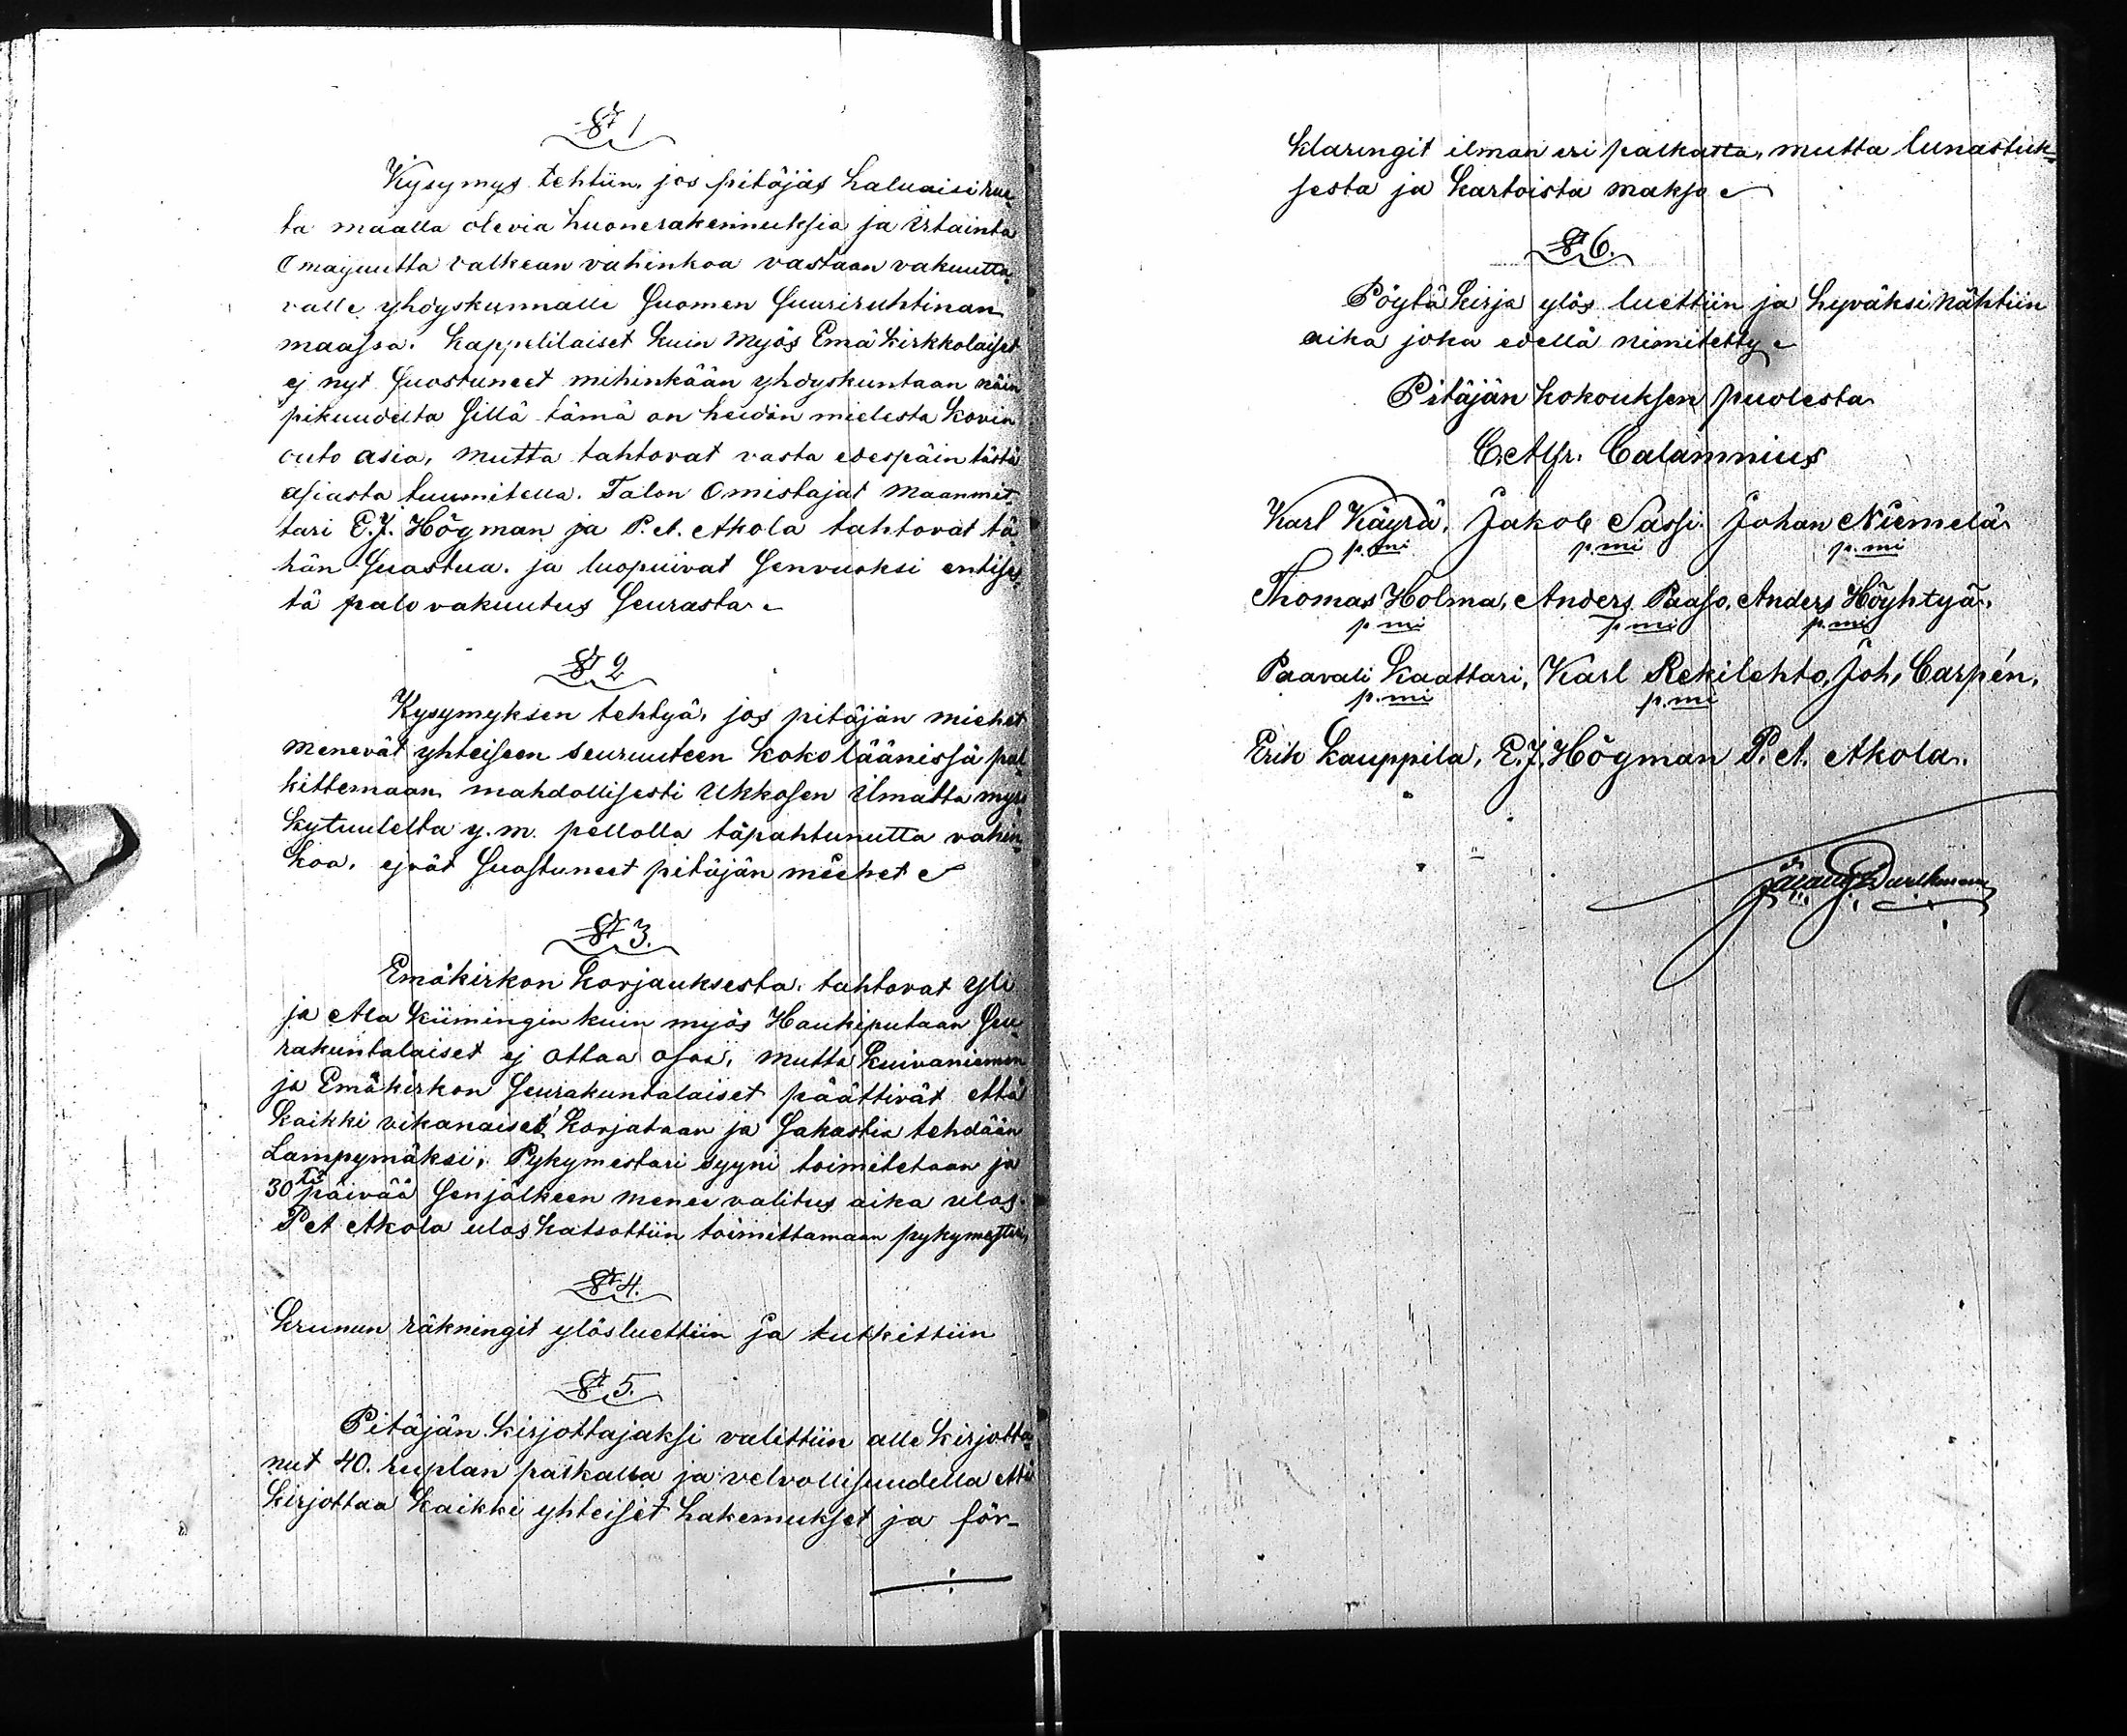 § 1
Kysymys tehtiin, jos pitäjäs haluaisi ruve-
ta maalla olevia huonerakennuksia ja irtainta
Omaisuutta valkean vahinkoa vastaan vakuutta-
valle yhdyskunnalle Suomen Suuriruhtinan
maassa. Kappelilaiset kuin myös Emä Kirkkolaiset
ej nyt Suostuneet mihinkään yhdyskuntaan näin
pikuudelta Sillä tämä on heidän mielestä kovin
outo asia, mutta tahtovat vasta edespäin tästä
asiasta tuumitella. Talon Omistajat Maanmit-
tari E.J. Högman ja P.A. Akola tahtovat tä-
hän Suostua. ja luopuivat Senvuoksi entises-
tä palo vakuutus Seurasta.
§ 2
Kysymyksen tehtyä, jos pitäjän miehet
menevät yhteiseen seuruuteen koko läänissä pal-
kittemaan mahdollisesti Ukkosen ilmatta myrs
kytuulelta y.m. pellolla tapahtunutta vahin-
koa, ejvät Suostuneet pitäjän miehet
§ 3.
Emäkirkon Korjauksesta, tahtovat Yli
ja Ala Kiimingin kuin myös Haukiputaan Seu-
rakuntalaiset ej ottaa osaa, mutta Kuivaniemen
ja Emäkirkon Seurakuntalaiset päättivät että
Kaikki vikanaiset Korjataan ja Sakastia tehdään
Lampymäksi, Pykymestari syyni toimitetaan ja
30 tä päivää Senjälkeen menee valitus aika ulos.
P A Akola ulos katsottiin toimittamaan pykymestari,
§ 4.
Krunun räkningit ylösluettiin ja tutkittiin
§ 5.
Pitäjän Kirjottajaksi valittiin alle kirjotta-
nut 40. ruplan palkalla ja velvollisuudella että
kirjottaa kaikki yhteiset hakemukset ja för-
klaringit ilman eri palkatta, mutta lunastuk-
sesta ja kartoista makso
§ 6.
Pöytä Kirja ylös luettiin ja hyväksi nähtiin
aika joka edellä nimitetty
Pitäjän kokouksen puolesta
C. Alfr. Calamnius
Karl Käyrä, Jakob Sassi. Johan Niemelä
p.mi p.mi p.mi
Thomas Holma, Anders Paaso, Anders Höyhtyä,
p.mi p.mi p.mi
Paavali Kaattari, Karl Rekilehto, Joh, Carpén,
p.mi p.mi
Erik Kauppila, E.J. Högman P. A. Akola.